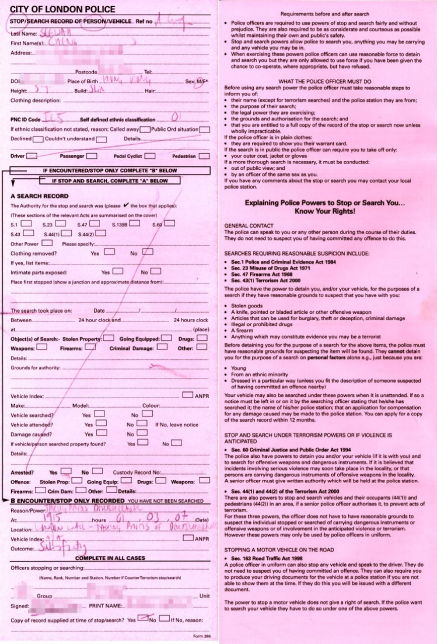 CITY OF LONDON POLICE
STOP/SEARCH RECORD OF PERSON/VEHICLE Ref no
Last Name:
First Name(s):
Address:
Postcode: Tel:
DOB: Place of Birth Sex:
Height: Build: Hair:
Clothing description:
PNC ID Code Self defined ethnic classification
If ethnic classification not stated, reason: Called away Public Ord situation
Declined Couldn't understand Details:
Driver Passenger Pedal Cyclist Pedestrian
IF ENCOUNTERED/STOP ONLY COMPLETE "B" BELOW
IF STOP AND SEARCH, COMPLETE "A" BELOW
A SEARCH RECORD
The Authority for the stop and search was (please ✓ the box that applies):
(These sections of the relevant Acts are summarised on the cover)
S.1 S.23 S.47 S.139B S.60
S.43 S.44(1) S.44(2)
Other Power Please specify:
Clothing removed? Yes No
If yes, list items:
Intimate parts exposed: Yes No
Place first stopped (show a junction and approximate distance from):
The search took place on: Date
Between 24 hour clock and 24 hours clock
at (place)
Object(s) of Search- Stolen Property: Going Equipped: Drugs:
Weapons: Firearms: Criminal Damage: Other:
Details:
Grounds for authority:
Vehicle Index: ANPR
Make: Model: Colour:
Vehicle searched? Yes No
Vehicle attended? Yes No If No, leave notice
Damage caused? Yes No
If vehicle/person searched property found? Yes No
Details:
Arrested? Yes No Custody Record No:
Offence: Stolen Prop: Going Equip: Drugs: Weapons:
Firearms: Crim Dam: Other: Details:
B ENCOUNTERED/STOP ONLY RECORDED YOU HAVE NOT BEEN SEARCHED
Reason/Power
At hours 01 07 07 (Date)
Location:
Vehicle Index: ANPR
Outcome:
COMPLETE IN ALL CASES
Officers stopping or searching:
(Name, Rank, Number and Station. Number if Counter Terrorism stop/search)
Group Unit
Signed: PRINT NAME:
Copy of record supplied at time of stop/search? Yes No If No, reason:
Form 286
Requirements before and after search
• Police officers are required to use powers of stop and search fairly and without
prejudice. They are also required to be as considerate and courteous as possible
whilst maintaining their own and public's safety.
• Stop and search powers allow police to search you, anything you may be carrying
and any vehicle you may be in.
• When exercising these powers police officers can use reasonable force to detain
and search you but they are only allowed to use force if you have been given the
chance to co-operate, where appropriate, but have refused.
WHAT THE POLICE OFFICER MUST DO
Before using any search power the police officer must take reasonable steps to
inform you of:
• their name (except for terrorism searches) and the police station they are from;
• the purpose of their search;
• the legal power they are exercising;
• the grounds and authorisation for the search; and
• that you are entitled to a full copy of the record of the stop or search now unless
wholly impracticable.
If the police officer is in plain clothes:
• they are required to show you their warrant card.
If the search is in public the police officer can require you to take off only:
• your outer coat, jacket or gloves
If a more thorough search is necessary, it must be conducted:
• out of public view; and
• by an officer of the same sex as you.
If you have any comments about the stop or search you may contact your local
police station.
Explaining Police Powers to Stop or Search You...
Know Your Rights!
GENERAL CONTACT
The police can speak to you or any other person during the course of their duties.
They do not need to suspect you of having committed any offence to do this.
SEARCHES REQUIRING REASONABLE SUSPICION INCLUDE:
• Sec. 1 Police and Criminal Evidence Act 1984
• Sec. 23 Misuse of Drugs Act 1971
• Sec. 47 Firearms Act 1968
• Sec. 43(1) Terrorism Act 2000
The police have the power to detain you, and/or your vehicle, for the purposes of a
search if they have grounds to suspect that you have with you:
• Stolen goods
• A knife, pointed or bladed article or other offensive weapon
• Articles that can be used for burglary, theft or deception, criminal damage
• Illegal or prohibited drugs
• A firearm
• Anything which may constitute evidence you may be a terrorist
Before detaining you for the purpose of a search for the above items, the police must
have reasonable grounds for suspecting the item will be found. They cannot detain
you for the purpose of a search on personal factors alone e.g., just because you are:
• Young
• From an ethnic minority
• Dressed in a particular way (unless you fit the description of someone suspected
of having committed an offence nearby)
Your vehicle may also be searched under these powers when it is unattended. If so a
notice must be left on or in it by the searching officer stating that he/she has
searched it; the name of his/her police station; that an application for compensation
for any damage caused may be made to the police station. You can apply for a copy
of the search record within 12 months.
STOP AND SEARCH UNDER TERRORISM POWERS OR IF VIOLENCE IS
ANTICIPATED
• Sec. 60 Criminal Justice and Public Order Act 1994
The police also have powers to detain you and/or your vehicle (if it is with you) and
to search for offensive weapons or dangerous instruments. If it is believed that
incidents involving serious violence may soon take place in your locality, or that
persons are carrying dangerous instruments or offensive weapons in the locality.
A senior officer must give written authority which will be held at the police station.
• Sec. 44(1) and 44(2) of the Terrorism Act 2000
There are also powers to stop and search vehicles and their occupants (44(1)) and
pedestrians (44(2)) in an area, if a senior police officer authorises it, to prevent acts of
terrorism.
For these three powers, the officer does not have to have reasonable grounds to
suspect the individual stopped or searched of carrying dangerous instruments or
offensive weapons or of involvement in the anticipated violence or terrorism.
However these powers may only be used by police officers in uniform.
STOPPING A MOTOR VEHICLE ON THE ROAD
• Sec. 163 Road Traffic Act 1988
A police officer in uniform can also stop any vehicle and speak to the driver. They do
not need to suspect you of having committed an offence. They can also require you
to produce your driving documents for the vehicle at a police station if you are not
able to show them at the time. If they do this you will be issued with a different
document.
The power to stop a motor vehicle does not give a right of search. If the police want
to search your vehicle they have to do so under one of the above powers.